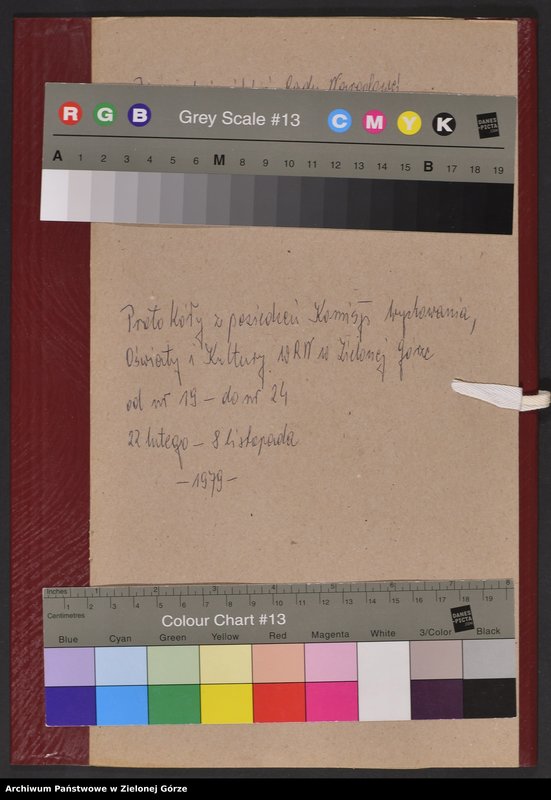 Rady Narodowej
R G B Grey Scale #13 C M Y K DANES -PICTA .COM
A 1 2 3 4 5 6 M 8 9 10 11 12 13 14 15 B 17 18 19
Protokóły z posiedzeń Komisji Wychowania,
Oświaty i Kultury WRN w Zielonej Górze
od nr 19 – do nr 24
22 lutego – 8 listopada
– 1979 –
Inches 1 2 3 4 5 6 7 8
1 2 3 4 5 6 7 8 9 10 11 12 13 14 15 16 17 18 19
Centimetres
Colour Chart #13 DANES -PICTA .COM
Blue Cyan Green Yellow Red Magenta White 3/Color Black
Archiwum Państwowe w Zielonej Górze